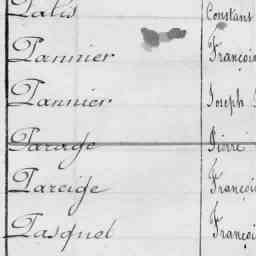 Palis Constant
Pannier François
Pannier Joseph
Parage Pierre
Pareige François
Pasquet François